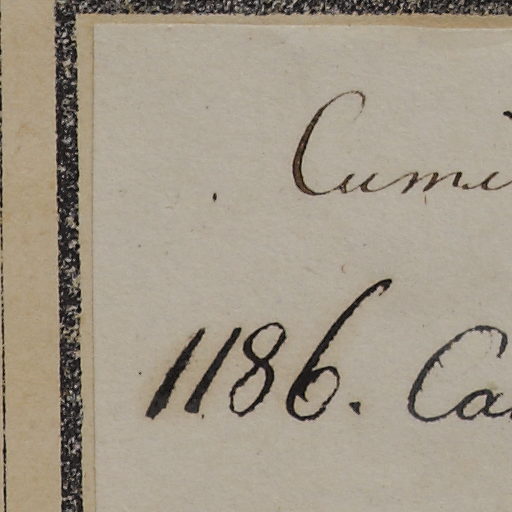 Cumi
1186. Ca